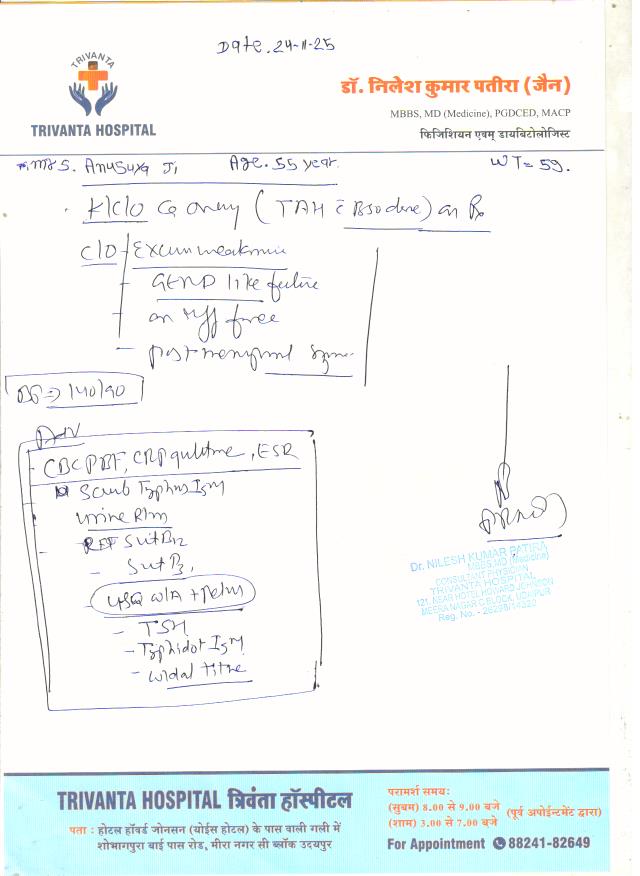 Date. 24-11-25
TRIVANTA
TRIVANTA HOSPITAL
डॉ. निलेश कुमार पतीरा (जैन)
MBBS, MD (Medicine), PGDCED, MACP
फिजिशियन एवम् डायबिटोलोजिस्ट
Mrs. Anusuya Ji Age. 55 year. WT = 59.
K/C/O Ca ovary (TAH c BSO done) on Rx
C/O
GERD like
on
- post
140/90
Adv
- CBC PBF, CRP , ESR
Scrub Typhus IgM
Urine R/m
RFT B12
USG W/A + Pelvis
- TSH
- Typhidot IgM
- Widal titre
Dr. NILESH KUMAR PATIRA
MBBS, MD (Medicine)
CONSULTANT PHYSICIAN
TRIVANTA HOSPITAL
121, NEAR HOTEL HOWARD JOHNSON
MEERA NAGAR C-BLOCK, UDAIPUR
Reg. No. -
TRIVANTA HOSPITAL त्रिवंता हॉस्पीटल
पता : होटल हॉवर्ड जोनसन (योईस होटल) के पास वाली गली में
शोभागपुरा बाई पास रोड़, मीरा नगर सी ब्लॉक उदयपुर
परामर्श समय:
(सुबम) 8.00 से 9.00 बजे
(शाम) 3.00 से 7.00 बजे
(पूर्व अपोईन्टमेंट द्वारा)
For Appointment 88241-82649